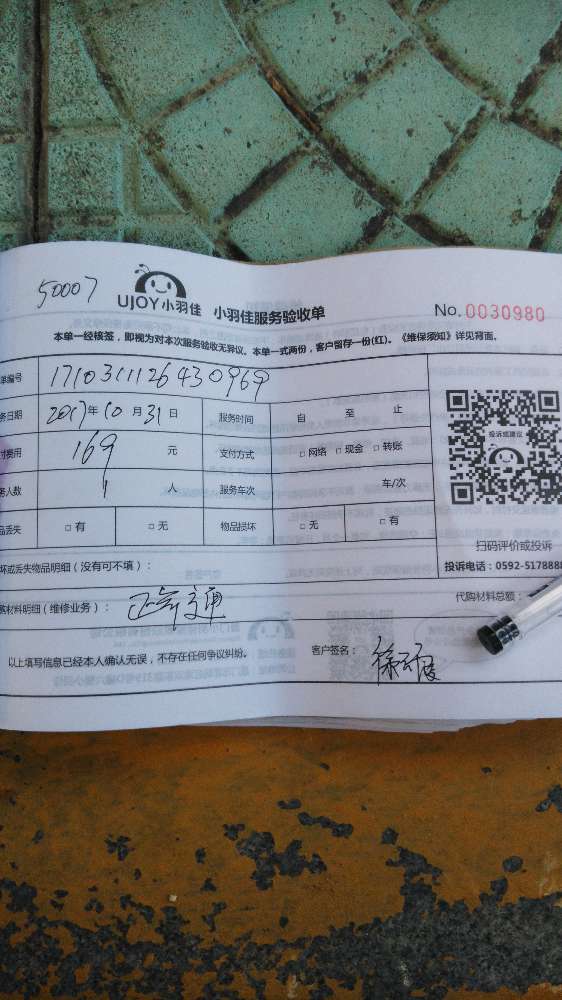 50007
UJOY小羽佳 小羽佳服务验收单 No.0030980
本单一经核签,即视为对本次服务验收无异议。本单一式两份,客户留存一份(红)。《维保须知》详见背面。
单编号 171031112643096
务日期 2017年10月31日 服务时间 自 至 止
付费用 169 元 支付方式 □网络 □现金 □转账
务人数 1 人 服务车次 车/次
品丢失 □有 □无 物品损坏 □无 □有
投诉或建议
扫码评价或投诉
投诉电话:0592-5178888
坏或丢失物品明细(没有可不填):
购材料明细(维修业务): 代购材料总额:
以上填写信息已经本人确认无误,不存在任何争议纠纷。 客户签名: